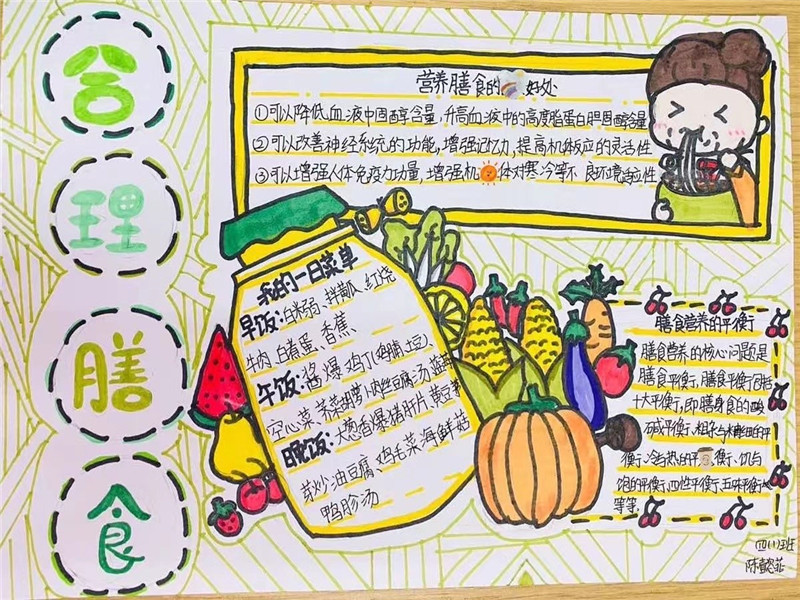 合
理
膳
食
营养膳食的好处
①可以降低血液中固醇含量,升高血液中的高度脂蛋白胆固醇含量
②可以改善神经系统的功能,增强记忆力,提高机体反应的灵活性
③可以增强人体免疫力功量,增强机体对寒冷等不良环境适应性
我的一日菜单
早饭:白米粥、拌黄瓜、红烧
牛肉、白煮蛋、香蕉、
午饭:酱爆鸡丁(鸡脯、土豆)、
空心菜、荠菜胡萝卜肉丝豆腐汤
晚饭:大葱香爆猪肝片、黄豆
芽炒油豆腐、鸡毛菜海鲜菇
鸭胗汤
膳食营养的平衡
膳食营养的核心问题是
膳食平衡,膳食平衡包括
十大平衡,即膳身食的酸
碱平衡、
衡、冷与热的平衡、饥与
饱的平衡、四性平衡、五味平衡
等等.
四(1)班